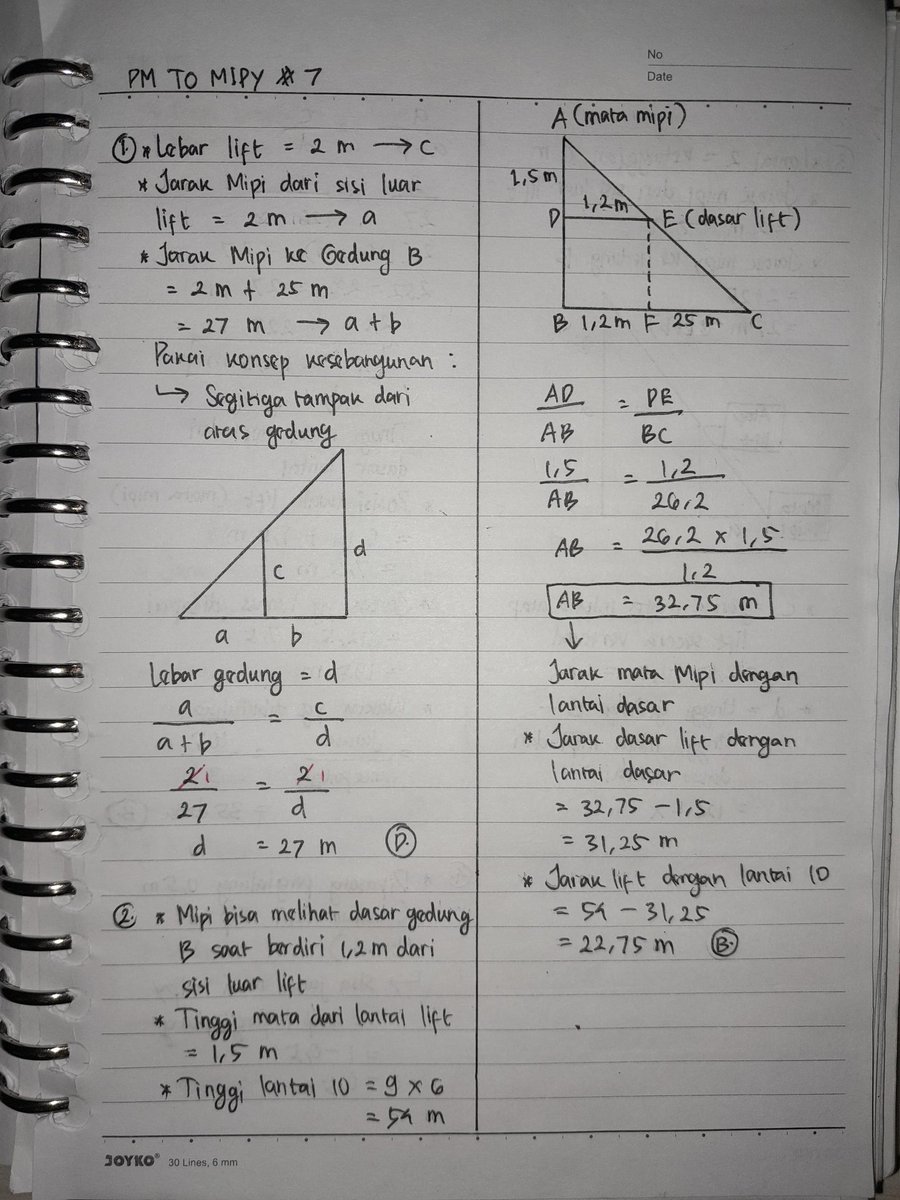 No
Date
PM TO MIPY # 7
① * Lebar lift = 2 m → C
* Jarak Mipi dari sisi luar
lift = 2 m → a
* Jarak Mipi ke Gedung B
= 2 m + 25 m
= 27 m → a + b
Pakai konsep kesebangunan :
↳ Segitiga tampak dari
atas gedung
c
d
a
b
Lebar gedung = d
a / a + b = c / d
2 1 / 27 = 2 1 / d
d = 27 m (D.)
②. * Mipi bisa melihat dasar gedung
B saat berdiri 1,2 m dari
sisi luar lift
* Tinggi mata dari lantai lift
= 1,5 m
* Tinggi lantai 10 = 9 x 6
= 54 m
A (mata mipi)
1,5 m
1,2 m
D
E (dasar lift)
B 1,2 m F 25 m C
AD / AB = DE / BC
1,5 / AB = 1,2 / 26,2
AB = 26,2 x 1,5 / 1,2
AB = 32,75 m
↓
Jarak mata Mipi dengan
lantai dasar
* Jarak dasar lift dengan
lantai dasar
= 32,75 - 1,5
= 31,25 m
* Jarak lift dengan lantai 10
= 54 - 31,25
= 22,75 m (B.)
JOYKO® 30 Lines, 6 mm